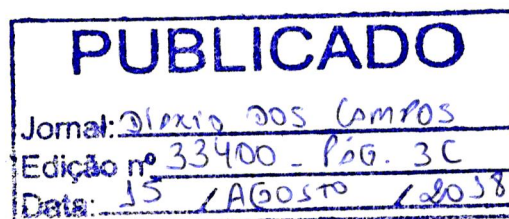 PUBLICADO
Jornal: DIÁRIO DOS CAMPOS
Edição nº 33400 - PÁG. 3C
Data: 15 / AGOSTO / 2018